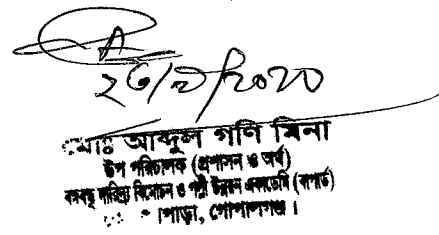 ২৩/৯/২০২০
মোঃ আব্দুল গণি মিনা
উপ পরিচালক (প্রশাসন ও অর্থ)
বঙ্গবন্ধু দারিদ্র্য বিমোচন ও পল্লী উন্নয়ন একাডেমি (বাপার্ড)
পাড়া, গোপালগঞ্জ।